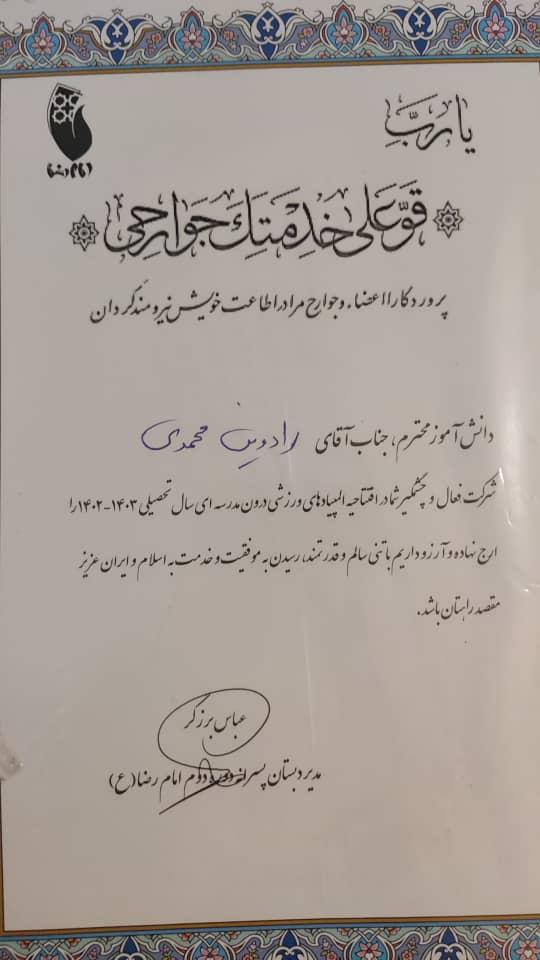 امام رضا
یا رَبِّ
قَوِّ عَلی خِدمَتِکَ جَوارِحی
پروردگارا اعضاء و جوارح مرا در اطاعت خویش نیرومند گردان
دانش آموز محترم، جناب آقای رادوین محمدی
شرکت فعال و چشمگیر شما در افتتاحیه المپیادهای ورزشی درون مدرسه ای سال تحصیلی ۱۴۰۳-۱۴۰۲ را
ارج نهاده و آرزو داریم با تنی سالم و قدرتمند، رسیدن به موفقیت و خدمت به اسلام و ایران عزیز
مقصد راهتان باشد.
عباس برزگر
مدیر دبستان پسرانه دوره دوم امام رضا (ع)